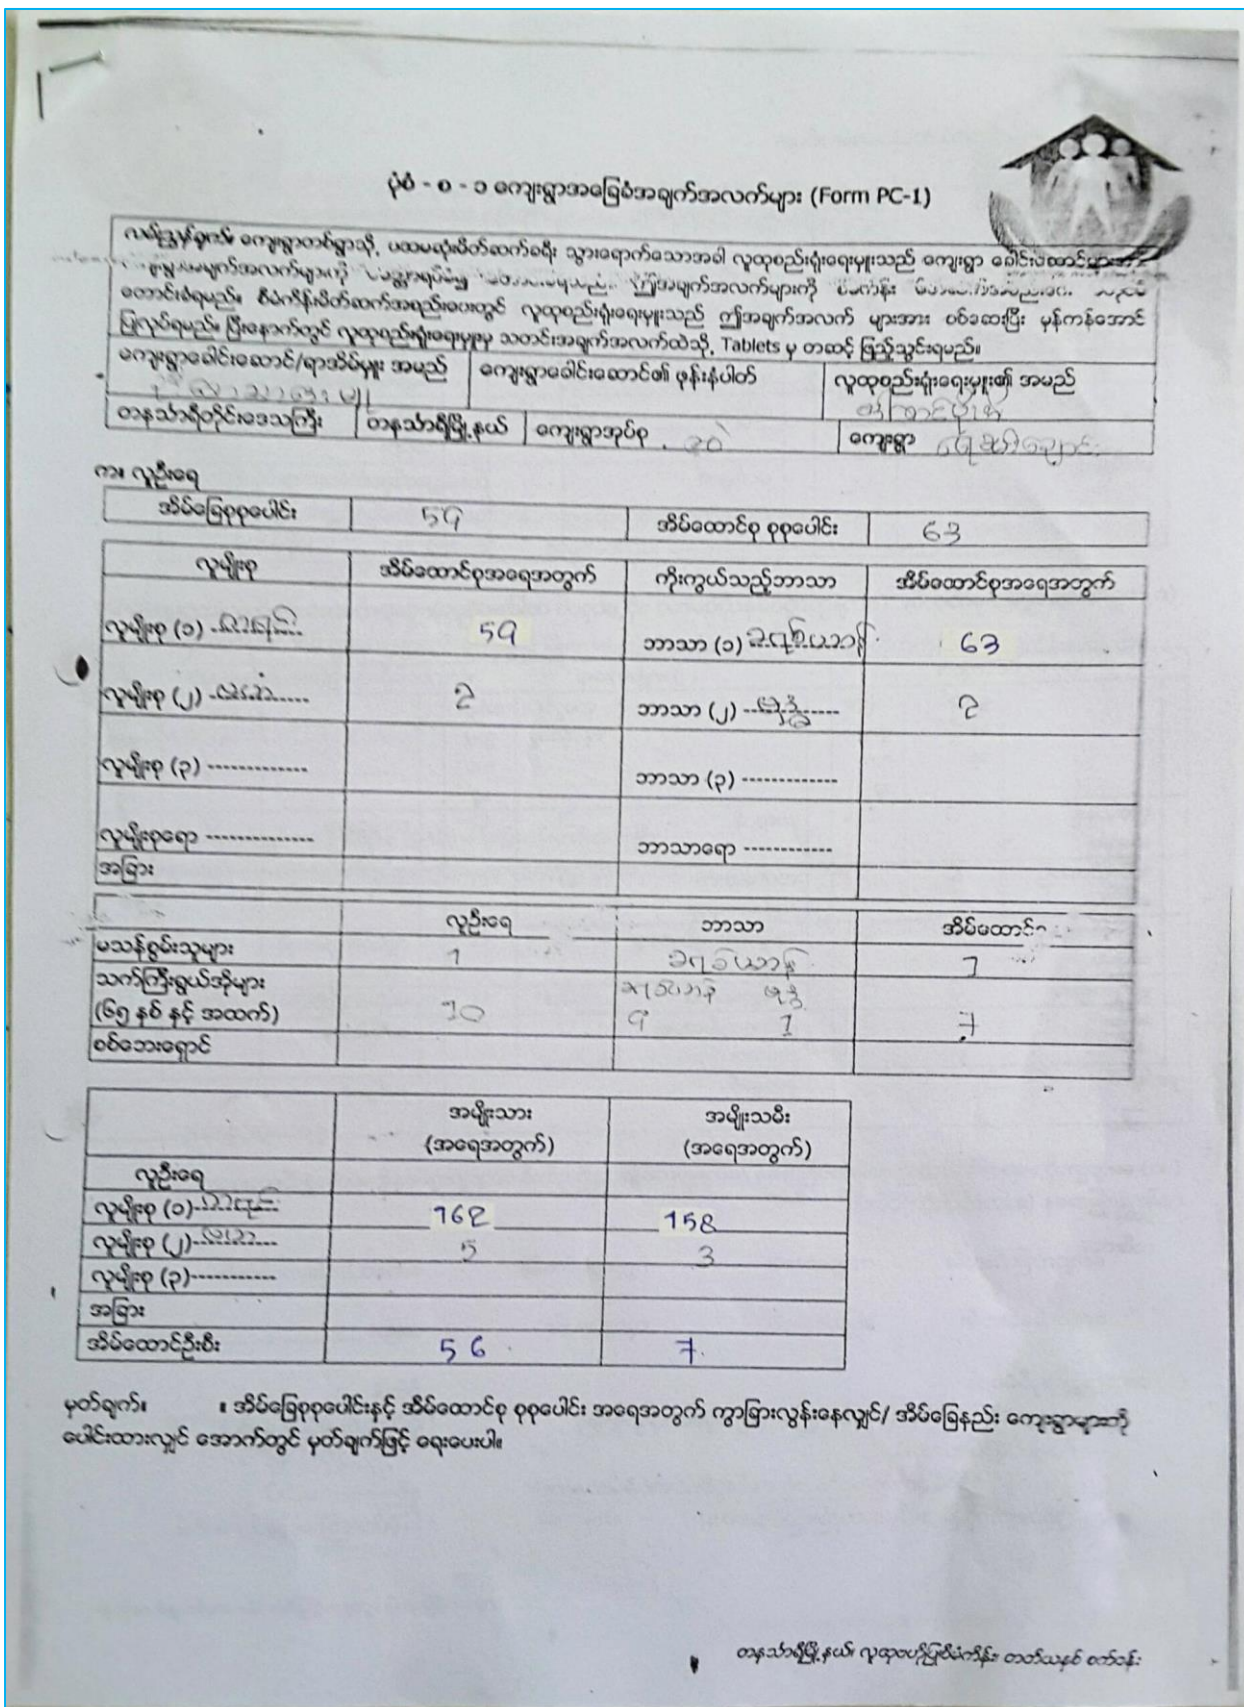 ပုံစံ - စ - ၁ ကျေးရွာအခြေခံအချက်အလက်များ (Form PC-1)
လမ်းညွှန်ချက်။ ကျေးရွာတစ်ရွာသို့ ပထမဆုံးမိတ်ဆက်ခရီး သွားရောက်သောအခါ လူထုစည်းရုံးရေးမှူးသည် ကျေးရွာ ခေါင်းဆောင်များအား
အချက်အလက်များကို ဤအချက်အလက်များကို
တောင်းခံရမည်။ စီမံကိန်းမိတ်ဆက်အစည်းဝေးတွင် လူထုစည်းရုံးရေးမှူးသည် ဤအချက်အလက် များအား စစ်ဆေးပြီး မှန်ကန်အောင်
ပြုလုပ်ရမည်။ ပြီးနောက်တွင် လူထုစည်းရုံးရေးမှူးမှ သတင်းအချက်အလက်ထဲသို့ Tablets မှ တဆင့် ဖြည့်သွင်းရမည်။
ကျေးရွာခေါင်းဆောင်/ရာအိမ်မှူး အမည် ကျေးရွာခေါင်းဆောင်၏ ဖုန်းနံပါတ် လူထုစည်းရုံးရေးမှူး၏ အမည်
တနင်္သာရီတိုင်းဒေသကြီး တနင်္သာရီမြို့နယ် ကျေးရွာအုပ်စု ကျေးရွာ
က။ လူဦးရေ
အိမ်ခြေစုစုပေါင်း 59 အိမ်ထောင်စု စုစုပေါင်း 63
လူမျိုးစု အိမ်ထောင်စုအရေအတွက် ကိုးကွယ်သည့်ဘာသာ အိမ်ထောင်စုအရေအတွက်
လူမျိုးစု (၁) ကရင် 59 ဘာသာ (၁) ခရစ်ယာန် 63
လူမျိုးစု (၂) 2 ဘာသာ (၂) ဗုဒ္ဓ 2
လူမျိုးစု (၃) ------------- ဘာသာ (၃) -------------
လူမျိုးစုရော -------------- ဘာသာရော ------------
အခြား
လူဦးရေ ဘာသာ အိမ်ထောင်
မသန်စွမ်းသူများ 1 ခရစ်ယာန် 1
သက်ကြီးရွယ်အိုများ ခရစ်ယာန် ဗုဒ္ဓ
(၆၅ နှစ် နှင့် အထက်) 10 9 1 7
စစ်ဘေးရှောင်
အမျိုးသား အမျိုးသမီး
(အရေအတွက်) (အရေအတွက်)
လူဦးရေ
လူမျိုးစု (၁) ကရင် 162 158
လူမျိုးစု (၂) 5 3
လူမျိုးစု (၃)------------
အခြား
အိမ်ထောင်ဦးစီး 56 7
မှတ်ချက်။ ။ အိမ်ခြေစုစုပေါင်းနှင့် အိမ်ထောင်စု စုစုပေါင်း အရေအတွက် ကွာခြားလွန်းနေလျှင်/ အိမ်ခြေနည်း ကျေးရွာများကို
ပေါင်းထားလျှင် အောက်တွင် မှတ်ချက်ဖြင့် ရေးပေးပါ။
တနင်္သာရီမြို့နယ်၊ လူထုဗဟိုပြုစီမံကိန်း၊ တတိယနှစ် စက်ဝန်း